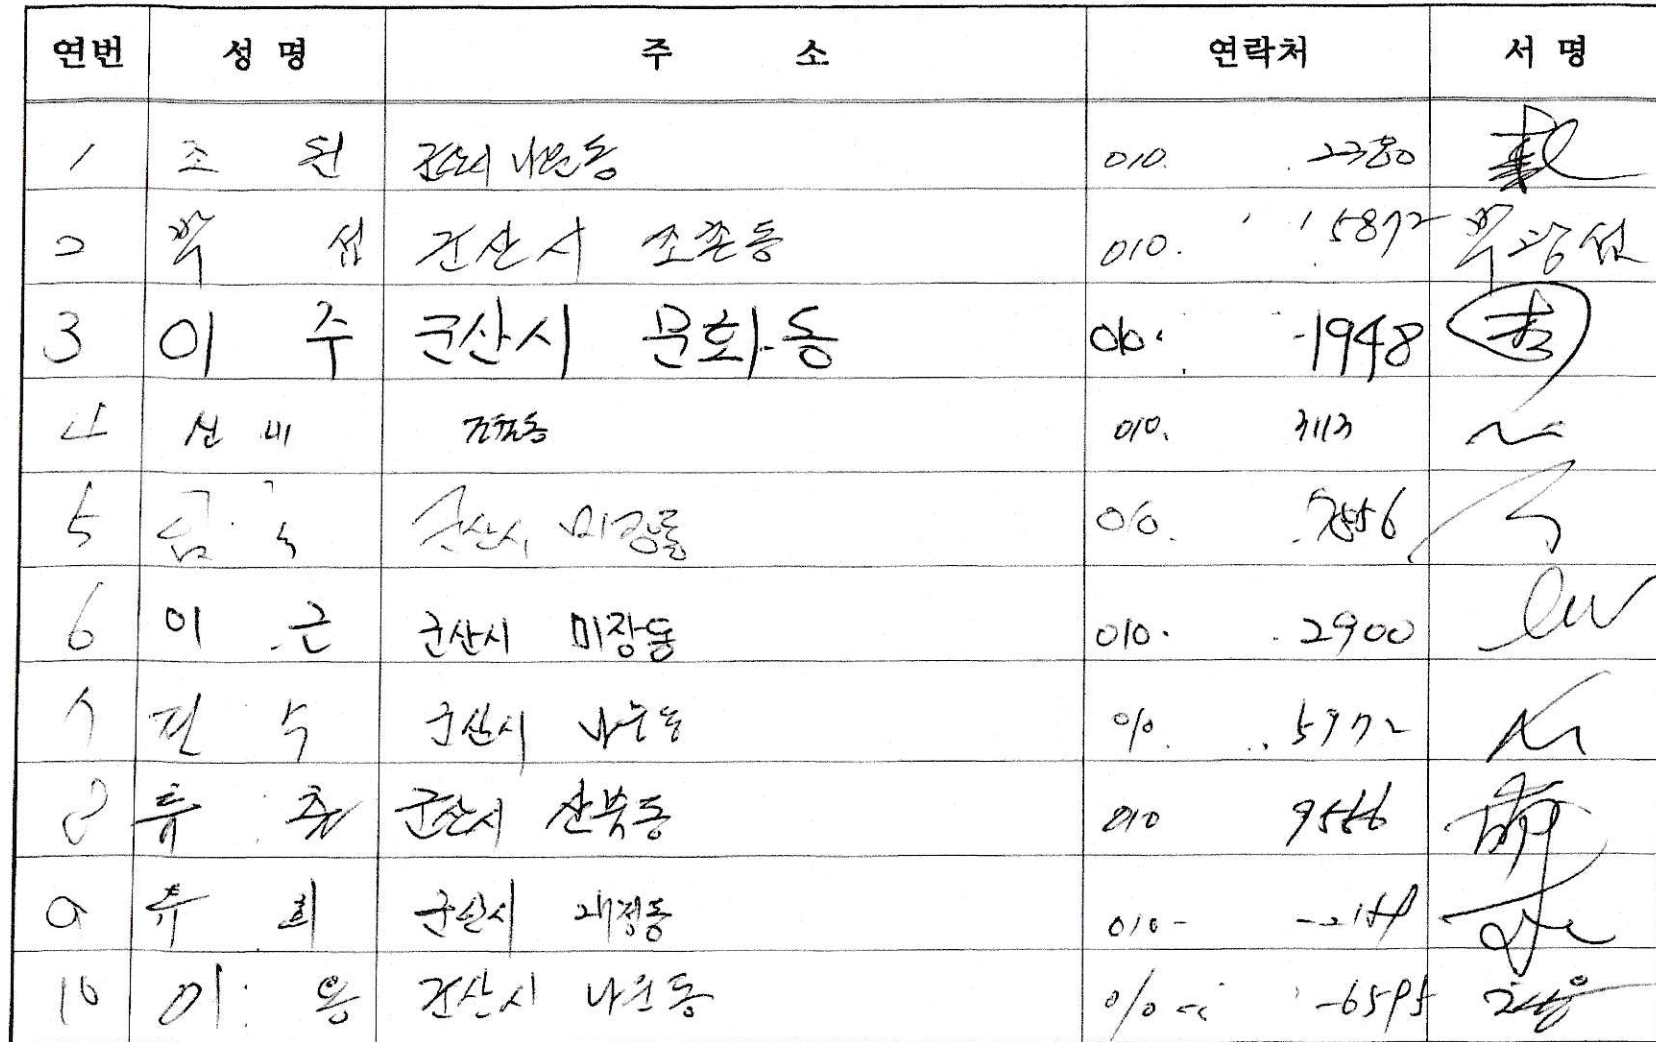 연번 성 명 주 소 연락처 서 명
1 조 원 군산시 나운동 010. 2380
2 박 섭 군산시 조촌동 010. 5872
3 이 주 군산시 문화동 010. -1948
4 신 비 010. 3113
5 군산시 미장동 010. 7556
6 이 근 군산시 미장동 010. 2900
7 전 수 군산시 나운동 010. 5972
8 류 군산시 산북동 010 9566
9 류 희 군산시 010-
10 이 용 군산시 나운동 010 -6595